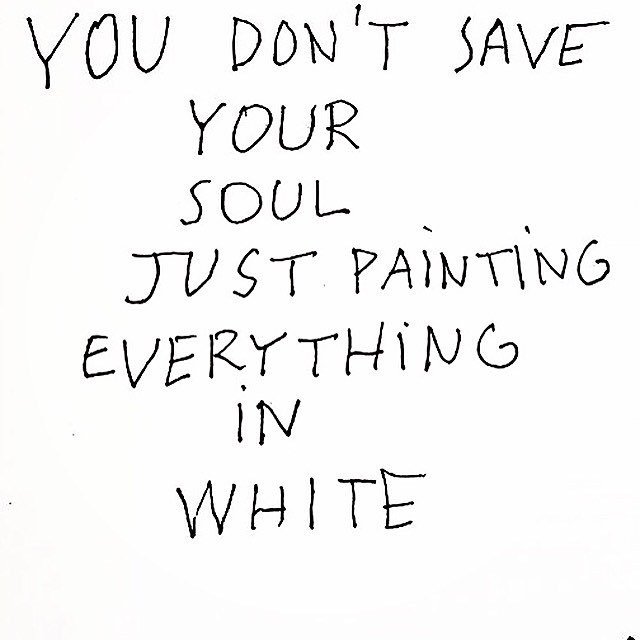 YOU DON'T SAVE
YOUR
SOUL
JUST PAINTING
EVERYTHING
IN
WHITE